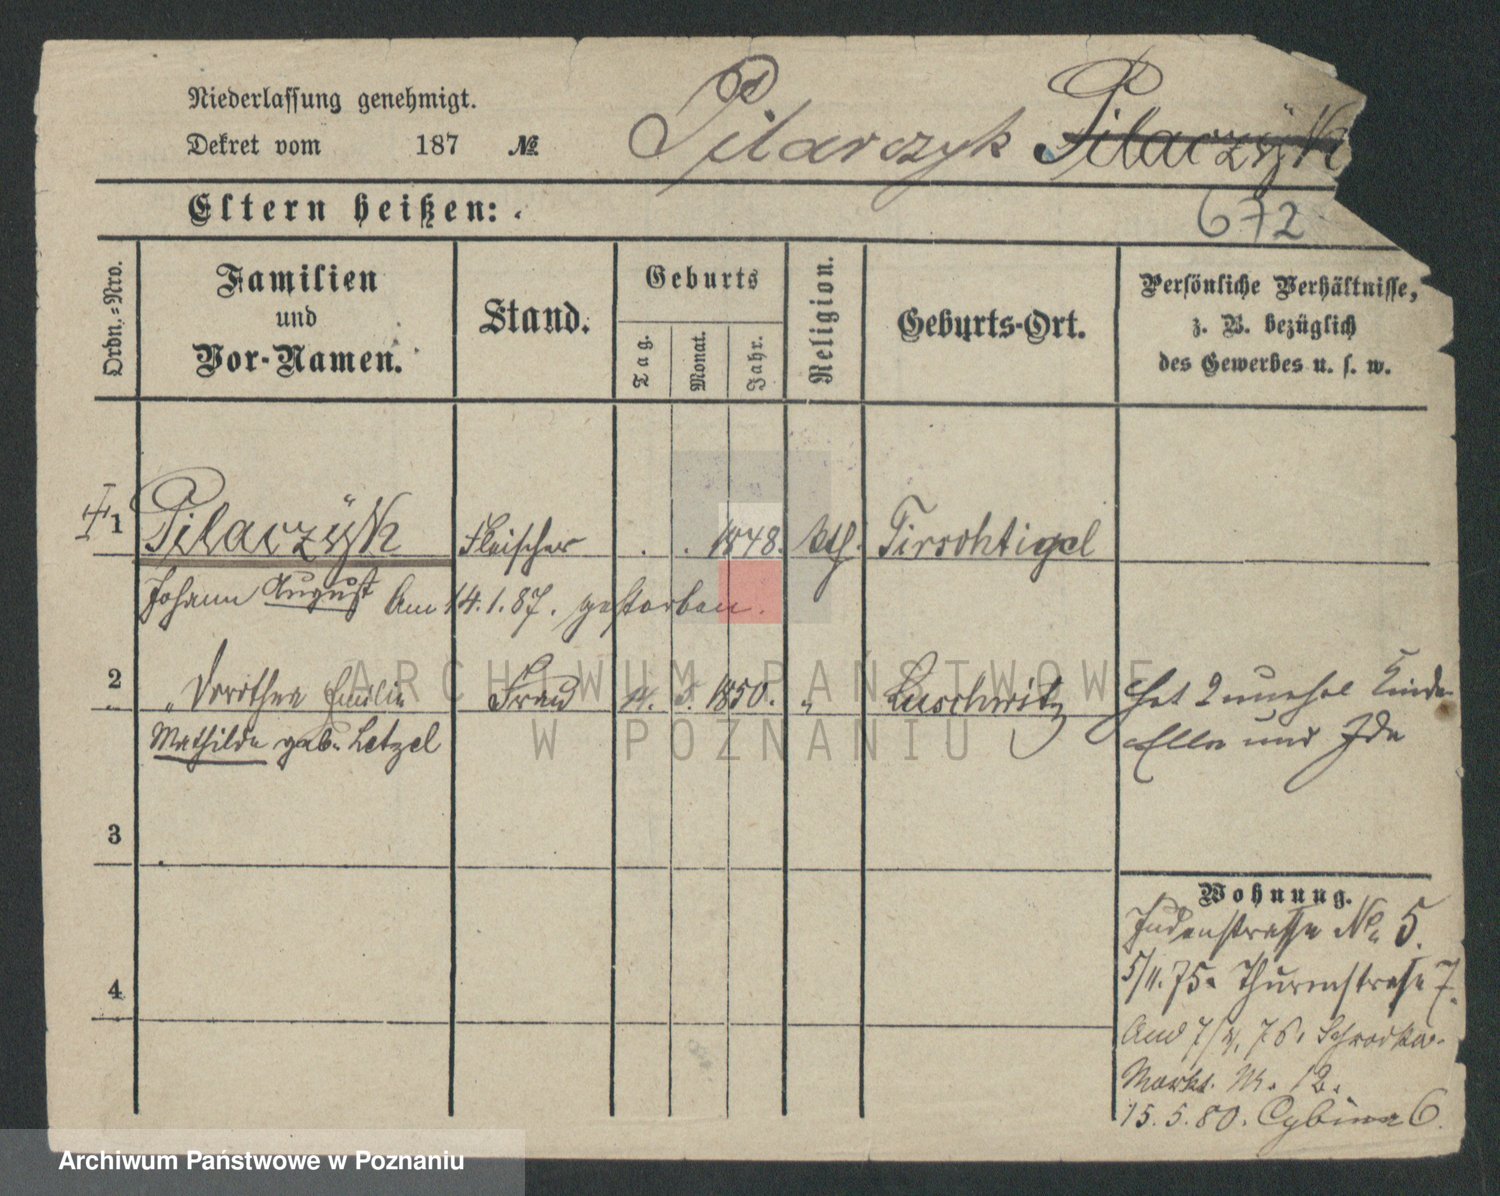 Niederlassung genehmigt.
Dekret vom 187 №
Pilarczyk Pilaczÿk
Eltern heißen:
672
Ordn.-Nro.
Familien
und
Vor-Namen.
Stand.
Geburts
Tag.
Monat.
Jahr.
Religion.
Geburts-Ort.
Persönliche Verhältnisse,
z. B. bezüglich
des Gewerbes u. s. w.
1 Pilaczÿk Fleischer . . 1848. kth. Tirschtigel
Johann August Am 14.1.87. gestorben.
2 " Dorothea Emilie Frau 14. 5. 1850. " Luschwitz
Mathilde geb. Letzel
hat 2 unehel Kinder
Ella und Ida
3
4
Wohnung.
Judenstrasse No 5.
5/11.75. Thurmstrasse 7.
7/4. 76. Schrodka-
Markt. Nr. 12.
15.5.80. Cybina 6.
ARCHIWUM PAŃSTWOWE
W POZNANIU
Archiwum Państwowe w Poznaniu